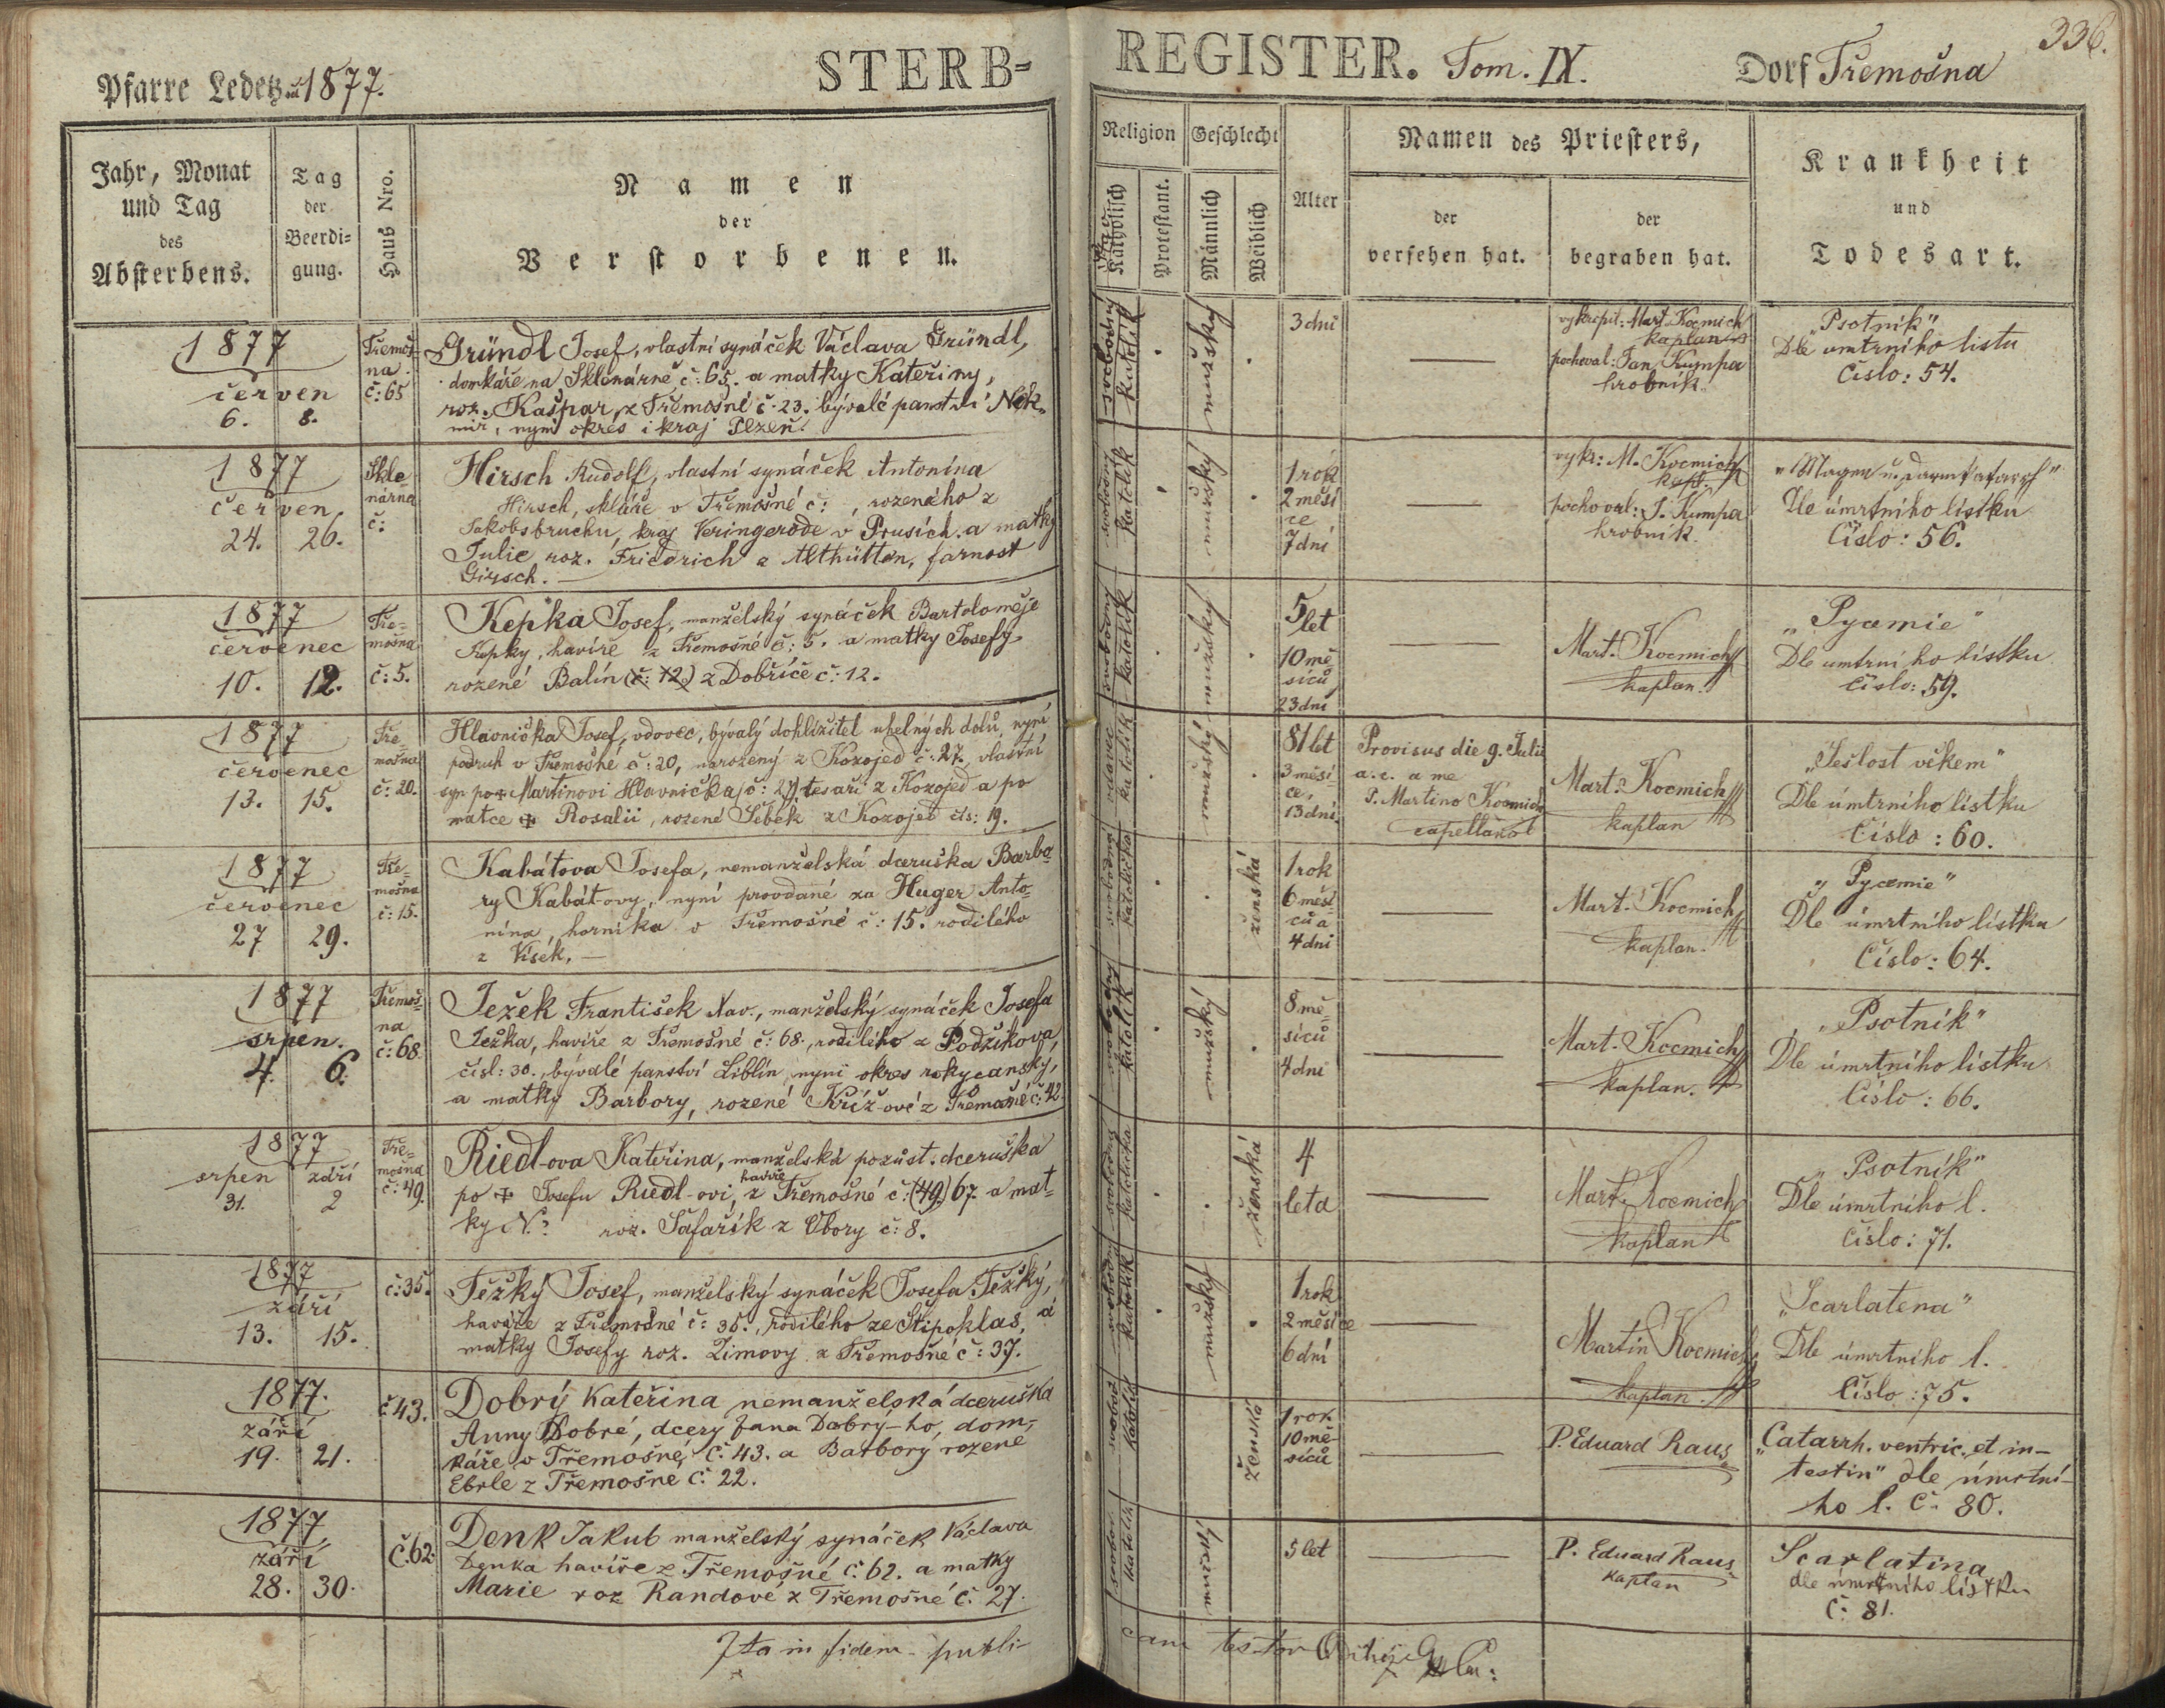 336.
Pfarre Ledetz 1877.
STERB-REGISTER. Tom. IX.
Dorf Třemošna
Jahr, Monat
und Tag
des
Absterbens.
Tag
der
Beerdi-
gung.
Haus Nro.
Namen
der
Verstorbenen.
Religion
Katholisch
Protestant.
Geschlecht
Männlich
Weiblich
Alter
Namen des Priesters,
der
versehen hat.
der
begraben hat.
Krankheit
und
Todesart.
1877
červen
6. 8.
Třemoš-
na
č: 65
Gründl Josef, vlastní synáček Václava Gründl,
domkáře na Sklenárně č: 65. a matky Kateřiny,
roz. Kašpar, z Třemošné č. 23. bývalé panství Nek-
míř, nyní okres i kraj Plzeň.
svobodný
katolík
mužský
3 dní
vykropil: Mart. Kocmich
kaplan
pochoval: Jan Kumpa
hrobník
"Psotník"
Dle umtrního listu
Číslo: 54.
1877
červen
24. 26.
Skle-
nárna
č:
Hirsch Rudolf, vlastní synáček Antonína
Hirsch, skláře v Třemošné č: , rozeného z
Jakobsbruchu, kraj Veringerode v Prusích. a matky
Julie roz. Friedrich z Althütten, farnost
Girsch. —
svobodný
katolík
mužský
1 rok
2 měsí
ce
7 dní
vykr: M. Kocmich
kapl.
pochoval: J. Kumpa
hrobník.
"Magen u. Darmkatarrh"
Dle úmrtního lístku
Číslo: 56.
1877
červenec
10. 12.
Tře-
mošna
č: 5.
Kepka Josef, manželský synáček Bartoloměje
Kepky, havíře z Třemošné č: 5. a matky Josefy
rozené Balín (č: 12.) z Dobříče č: 12.
svobodný
katolík
mužský
5 let
10 mě-
síců
23 dní
Mart. Kocmich
kaplan.
"Pyæmie"
Dle umtrního lístku
Číslo: 59.
1877
červenec
13. 15.
Tře-
mošna
č: 20.
Hlavnička Josef, vdovec, bývalý dohlížitel uhelných dolů, nyní
podruh v Třemošné č: 20, narozený z Kozojed č: 27., vlastní
syn po + Martinovi Hlavnička, č: 27, tesaři z Kozojed a po
matce + Rosalii, rozené Šebek z Kozojed čís: 19.
vdovec
katolík
mužský
81 let
3 měsí-
ce,
13 dní.
Provisus die 9. Julii
a. c. a me
P. Martino Kocmich
capellano
Mart. Kocmich
kaplan
"Sešlost věkem"
Dle úmtrního lístku
Číslo: 60.
1877
červenec
27 29.
Tře-
mošna
č: 15.
Kabátova Josefa, nemanželská dceruška Barbo-
ry Kabát-ovy, nyní provdané za Huger Anto-
nína, horníka v Třemošné č: 15. rodilého
z Vísek. —
svobodná
katolička
ženská
1 rok
6 měsí-
ců a
4 dni
Mart. Kocmich
kaplan.
"Pyæmie"
Dle úmrtního lístku
Číslo: 64.
1877
srpen.
4. 6.
Třemoš-
na
č: 68.
Ježek František Xav., manželský synáček Josefa
Ježka, havíře z Třemošné č: 68., rodilého z Podžikova,
čísl: 30., bývalé panství Liblín, nyní okres rokycanský,
a matky Barbory, rozené Kříž-ové z Třemošné č: 42
svobodný
katolík
mužský
8 mě-
síců
4 dní
Mart. Kocmich
kaplan.
"Psotník"
Dle úmrtního lístku
Číslo: 66.
1877
srpen září
31. 2
Tře-
mošna
č: 49.
Riedl-ova Kateřina, manželská pozůst. dceruška
po + Josefu Riedl-ovi, havíře z Třemošné č: (49.) 67. a mat-
ky N? roz. Šafařík z Obory č: 8.
svobodná
katolička
ženská
4
leta
Mart. Kocmich
kaplan
"Psotník"
Dle úmrtního l.
Číslo: 71.
1877
září
13. 15.
č: 35.
Težký Josef, manželský synáček Josefa Težký,
havíře z Třemošné č: 35., rodilého ze Štipoklas, a
matky Josefy roz. Zimovy z Třemošné č: 37.
svobodný
katolík
mužský
1 rok
2 měsíce
6 dní
Martin Kocmich
kaplan.
"Scarlatena"
Dle úmrtního l.
Číslo: 75.
1877.
září
19. 21.
č 43.
Dobrý Kateřina nemanželská dceruška
Anny Dobré, dcery Jana Dobrý-ho, dom-
káře v Třemošné, č: 43. a Barbory rozené
Eberle z Třemošné č: 22.
svobod
katolič
ženská
1 rok
10 mě-
síců
P. Eduard Raus
"Catarrh. ventric. et in-
testin" dle úmrtní-
ho l. č. 80.
1877
září
28. 30.
č. 62.
Denk Jakub manželský synáček Václava
Denka havíře z Třemošné č. 62. a matky
Marie roz Randové z Třemošné č. 27.
svobod.
katolík
mužský
5 let
P. Eduard Raus
kaplan
Scarlatina
dle úmrtního lístku
č: 81.
Ita in fidem publi-
cam testor